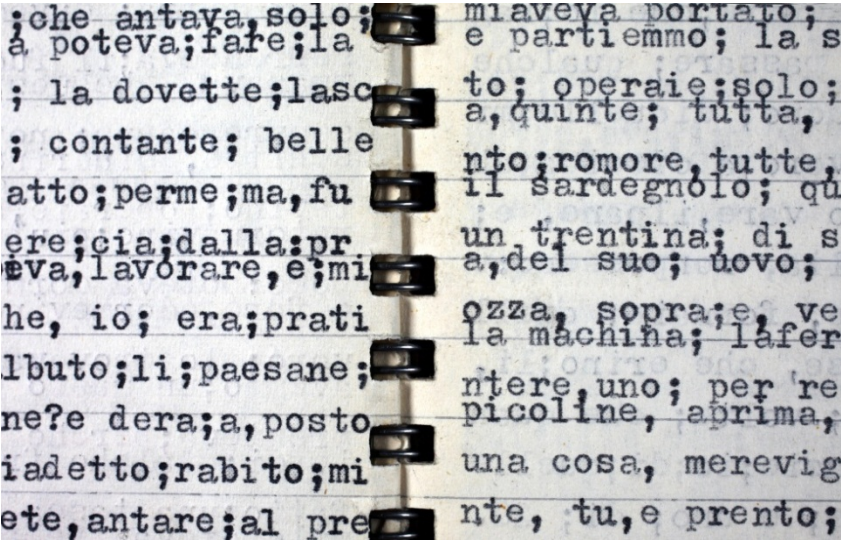 ;che antava,solo;
a poteva;fare;la
; la dovette;lasc
; contante; belle
atto;perme;ma,fu
ere;cia;dalla;pr
eva,lavorare,e;mi
he, io; era;prati
lbuto;li;paesane;
ne?e dera;a,posto
iadetto;rabito;mi
ete,antare;al pre
miaveva portato;
e partiemmo; la s
to; operaie;solo;
a,quinte; tutta,
nto;romore,tutte,
il sardegnolo; qu
un trentina; di s
a,del suo; uovo;
ozza, sopra;e, ve
la machina; lafer
ntere,uno; per re
picoline, aprima,
una cosa, merevig
nte, tu,e prento;